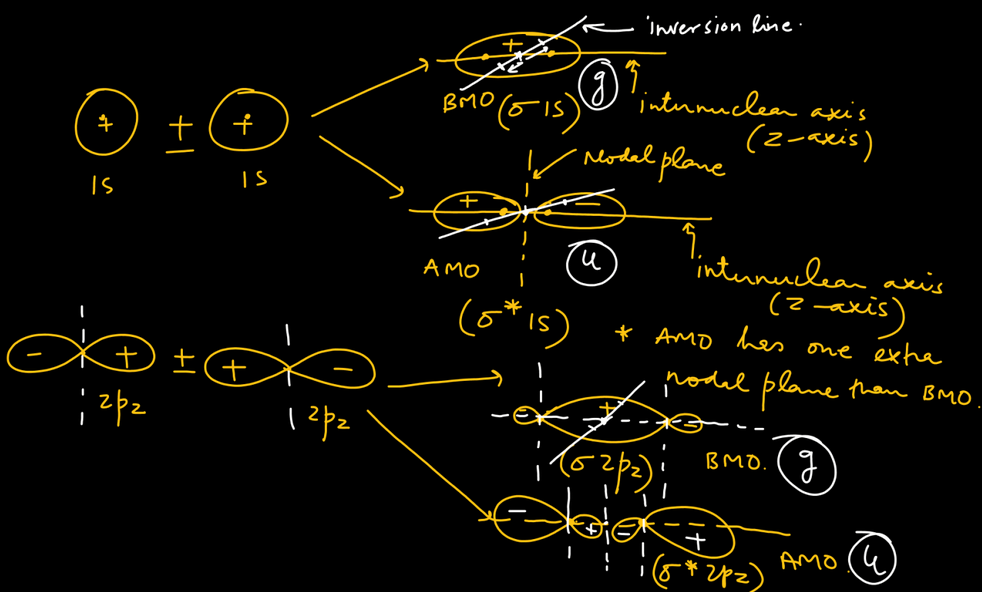 inversion line.
+
BMO (σ 1s) g
internuclear axis
(z-axis)
+ ± +
1s 1s
Nodal plane
+ -
AMO u
(σ* 1s)
internuclear axis
(z-axis)
* AMO has one extra
nodal plane than BMO.
- + ± + -
2pz 2pz
- + -
(σ 2pz) BMO. g
- + - +
(σ* 2pz) AMO. u